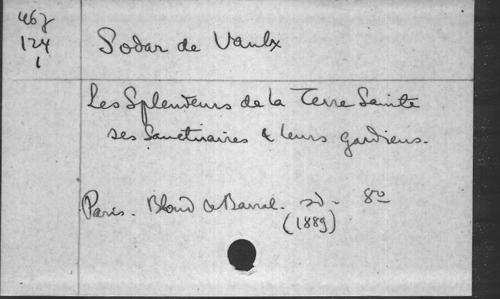 467
124
1
Sodar de Vaulx
Les Splendeurs de la Terre Sainte
ses Sanctuaires & leurs gardiens.
Paris. Bloud & Barral. sd - 8º
(1889)